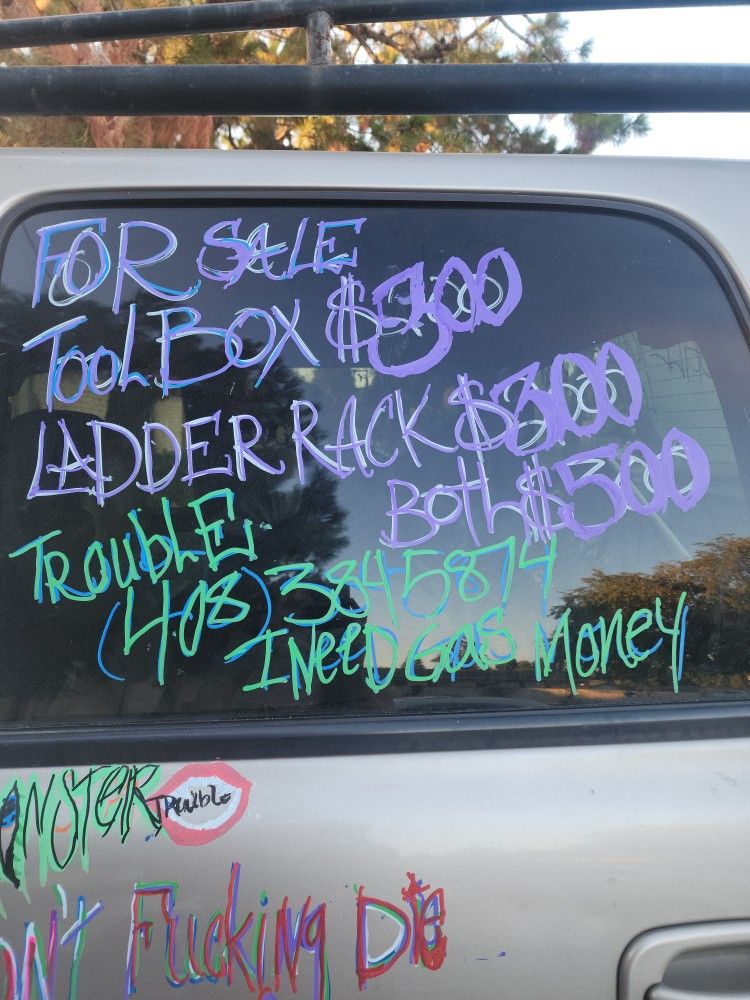 FOR SALE
TOOLBOX $300
LADDER RACK $300
Both $500
TROUBLE
(408) 3845874
I NEED Gas Money
ONSTER TROUBLE
on't Fucking DIE